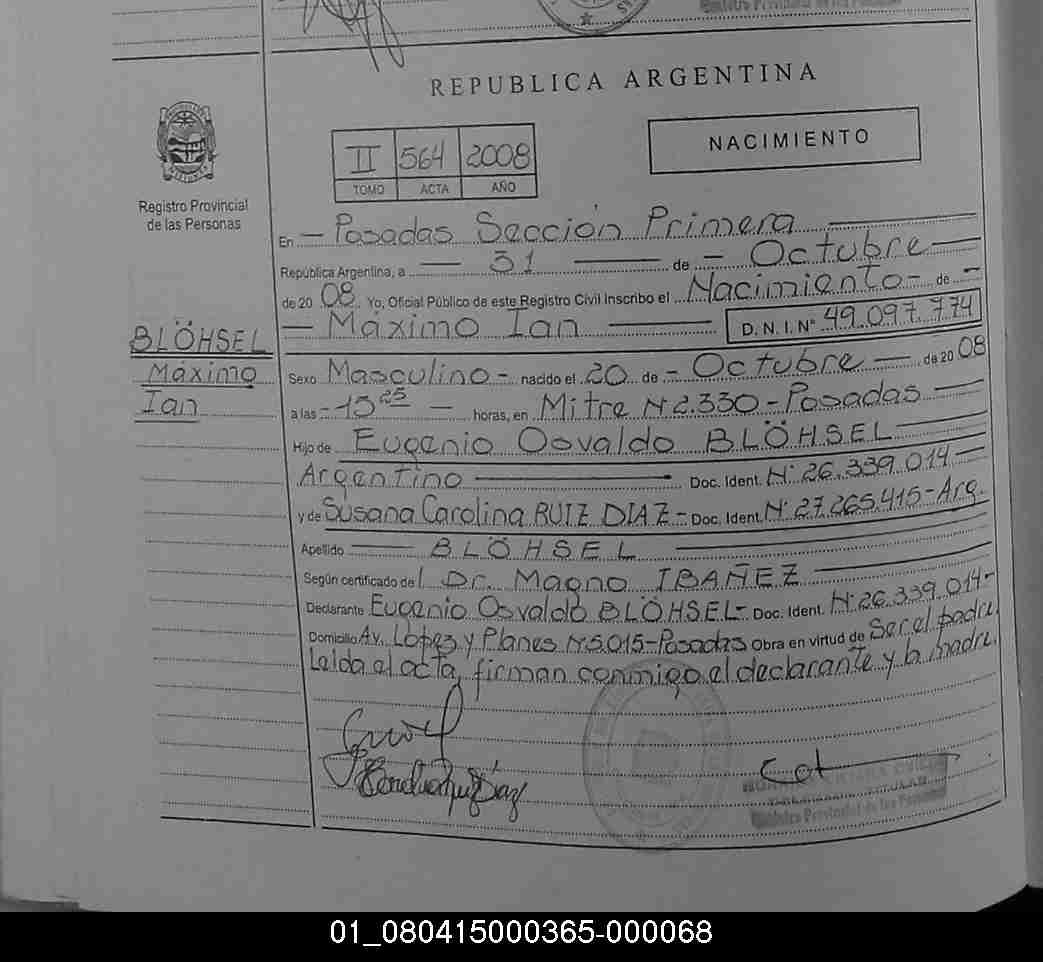 REPUBLICA ARGENTINA
NACIMIENTO
II 564 2008
TOMO ACTA AÑO
Registro Provincial
de las Personas
En - Posadas Sección Primera
República Argentina, a - 31 - de - Octubre
de 2008. Yo, Oficial Público de este Registro Civil Inscribo el Nacimiento - de -
- Máximo Ian - D. N. I. N° 49.097.774
BLÖHSEL
Máximo
Ian
Sexo Masculino - nacido el 20 de - Octubre - de 2008
a las - 13 25 - horas, en Mitre N° 2.330 - Posadas
Hijo de Eugenio Osvaldo BLÖHSEL
Argentino Doc. Ident. N° 26.339.014
y de Susana Carolina RUIZ DIAZ - Doc. Ident. N° 27.265.415 - Arg.
Apellido BLÖHSEL
Según certificado del Dr. Magno IBAÑEZ
Declarante Eugenio Osvaldo BLÖHSEL - Doc. Ident. N° 26.339.014 -
Domicilio Av. López y Planes N° 5.015 - Posadas Obra en virtud de Ser el padre.
Leída el acta, firman conmigo el declarante y la madre.
Registro Provincial de las Personas
01_080415000365-000068